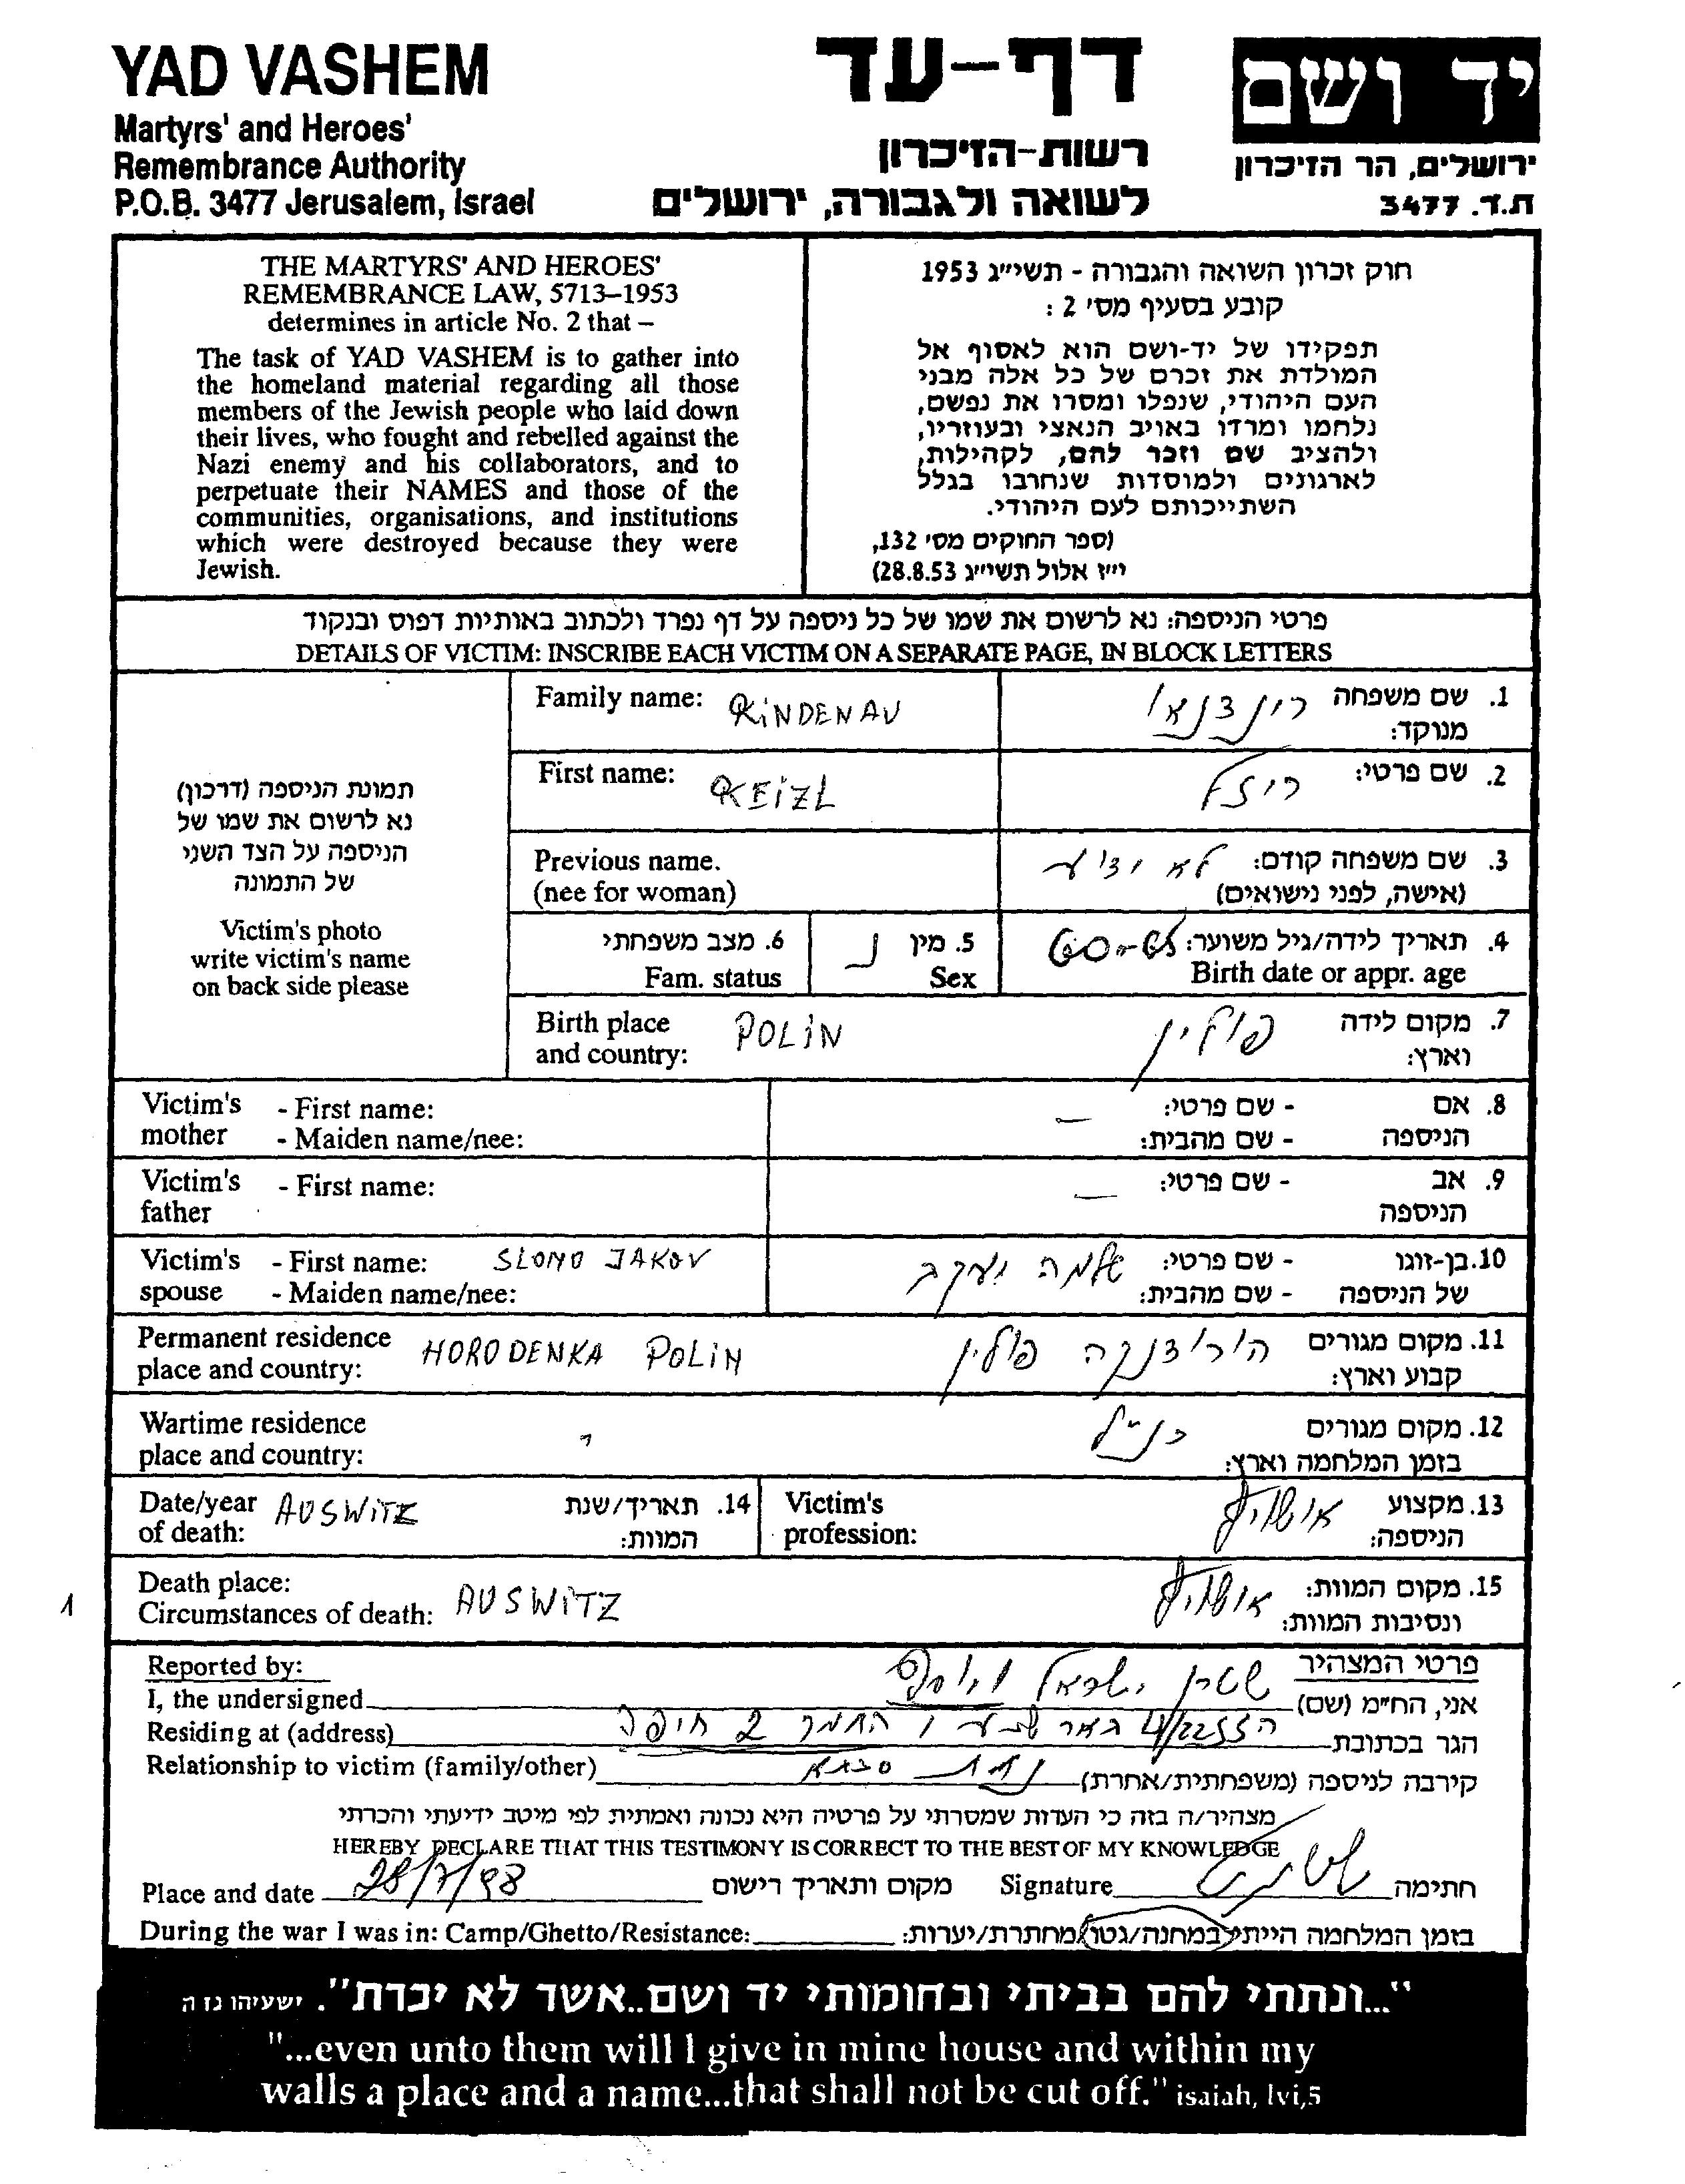 YAD VASHEM
Martyrs' and Heroes'
Remembrance Authority
P.O.B. 3477 Jerusalem, Israel
דף-עד
רשות-הזיכרון
לשואה ולגבורה, ירושלים
יד ושם
ירושלים, הר הזיכרון
ת.ד. 3477
THE MARTYRS' AND HEROES'
REMEMBRANCE LAW, 5713–1953
determines in article No. 2 that –
The task of YAD VASHEM is to gather into
the homeland material regarding all those
members of the Jewish people who laid down
their lives, who fought and rebelled against the
Nazi enemy and his collaborators, and to
perpetuate their NAMES and those of the
communities, organisations, and institutions
which were destroyed because they were
Jewish.
חוק זכרון השואה והגבורה - תשי״ג 1953
קובע בסעיף מס׳ 2 :
תפקידו של יד-ושם הוא לאסוף אל
המולדת את זכרם של כל אלה מבני
העם היהודי, שנפלו ומסרו את נפשם,
נלחמו ומרדו באויב הנאצי ובעוזריו,
ולהציב שם וזכר להם, לקהילות,
לארגונים ולמוסדות שנחרבו בגלל
השתייכותם לעם היהודי.
(ספר החוקים מס׳ 132,
י״ז אלול תשי״ג 28.8.53)
פרטי הניספה: נא לרשום את שמו של כל ניספה על דף נפרד ולכתוב באותיות דפוס ובנקוד
DETAILS OF VICTIM: INSCRIBE EACH VICTIM ON A SEPARATE PAGE, IN BLOCK LETTERS
תמונת הניספה (דרכון)
נא לרשום את שמו של
הניספה על הצד השני
של התמונה
Victim's photo
write victim's name
on back side please
Family name: RINDENAU
1. שם משפחה מנוקד: רינדנאו
First name: REIZL
2. שם פרטי: ריזל
Previous name.
(nee for woman)
3. שם משפחה קודם: לא ידוע
(אישה, לפני נישואים)
4. תאריך לידה/גיל משוער: 60-65
Birth date or appr. age
5. מין נ
Sex
6. מצב משפחתי
Fam. status
Birth place
and country: POLIN
7. מקום לידה
וארץ: פולין
Victim's mother - First name:
- Maiden name/nee:
8. אם הניספה - שם פרטי: —
- שם מהבית:
Victim's father - First name:
9. אב הניספה - שם פרטי: —
Victim's spouse - First name: SLOMO JAKOV
- Maiden name/nee:
10. בן-זוגו של הניספה - שם פרטי: שלמה יעקב
- שם מהבית:
Permanent residence
place and country: HORODENKA POLIN
11. מקום מגורים
קבוע וארץ: הורודנקה פולין
Wartime residence
place and country:
12. מקום מגורים
בזמן המלחמה וארץ: כנ״ל
Date/year
of death: AUSWITZ
14. תאריך/שנת
המוות:
Victim's
profession:
13. מקצוע
הניספה: אושוויץ
Death place:
Circumstances of death: AUSWITZ
15. מקום המוות:
ונסיבות המוות: אושוויץ
1
Reported by:
פרטי המצהיר
I, the undersigned
אני, הח״מ (שם) שטרן ישראל
Residing at (address)
הגר בכתובת 2 חיפה
Relationship to victim (family/other)
קירבה לניספה (משפחתית/אחרת) סבתא
מצהיר/ה בזה כי העדות שמסרתי על פרטיה היא נכונה ואמתית לפי מיטב ידיעתי והכרתי
HEREBY DECLARE THAT THIS TESTIMONY IS CORRECT TO THE BEST OF MY KNOWLEDGE
Place and date 28/7/98 מקום ותאריך רישום
Signature חתימה
During the war I was in: Camp/Ghetto/Resistance:
בזמן המלחמה הייתי במחנה/גטו/מחתרת/יערות:
"...ונתתי להם בביתי ובחומותי יד ושם..אשר לא יכרת". ישעיהו נז ה
"...even unto them will I give in mine house and within my
walls a place and a name...that shall not be cut off." isaiah, lvi,5